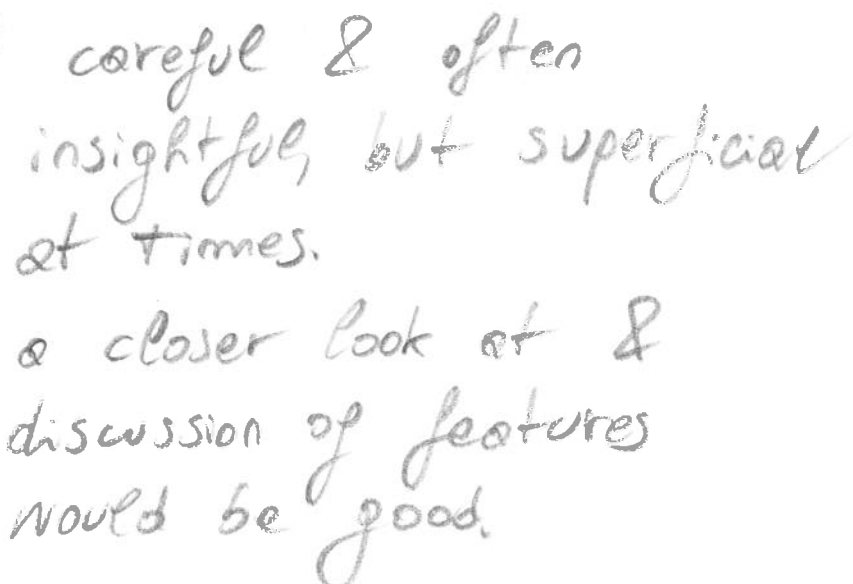 careful & often
insightful, but superficial
at times.
a closer look at &
discussion of features
would be good.